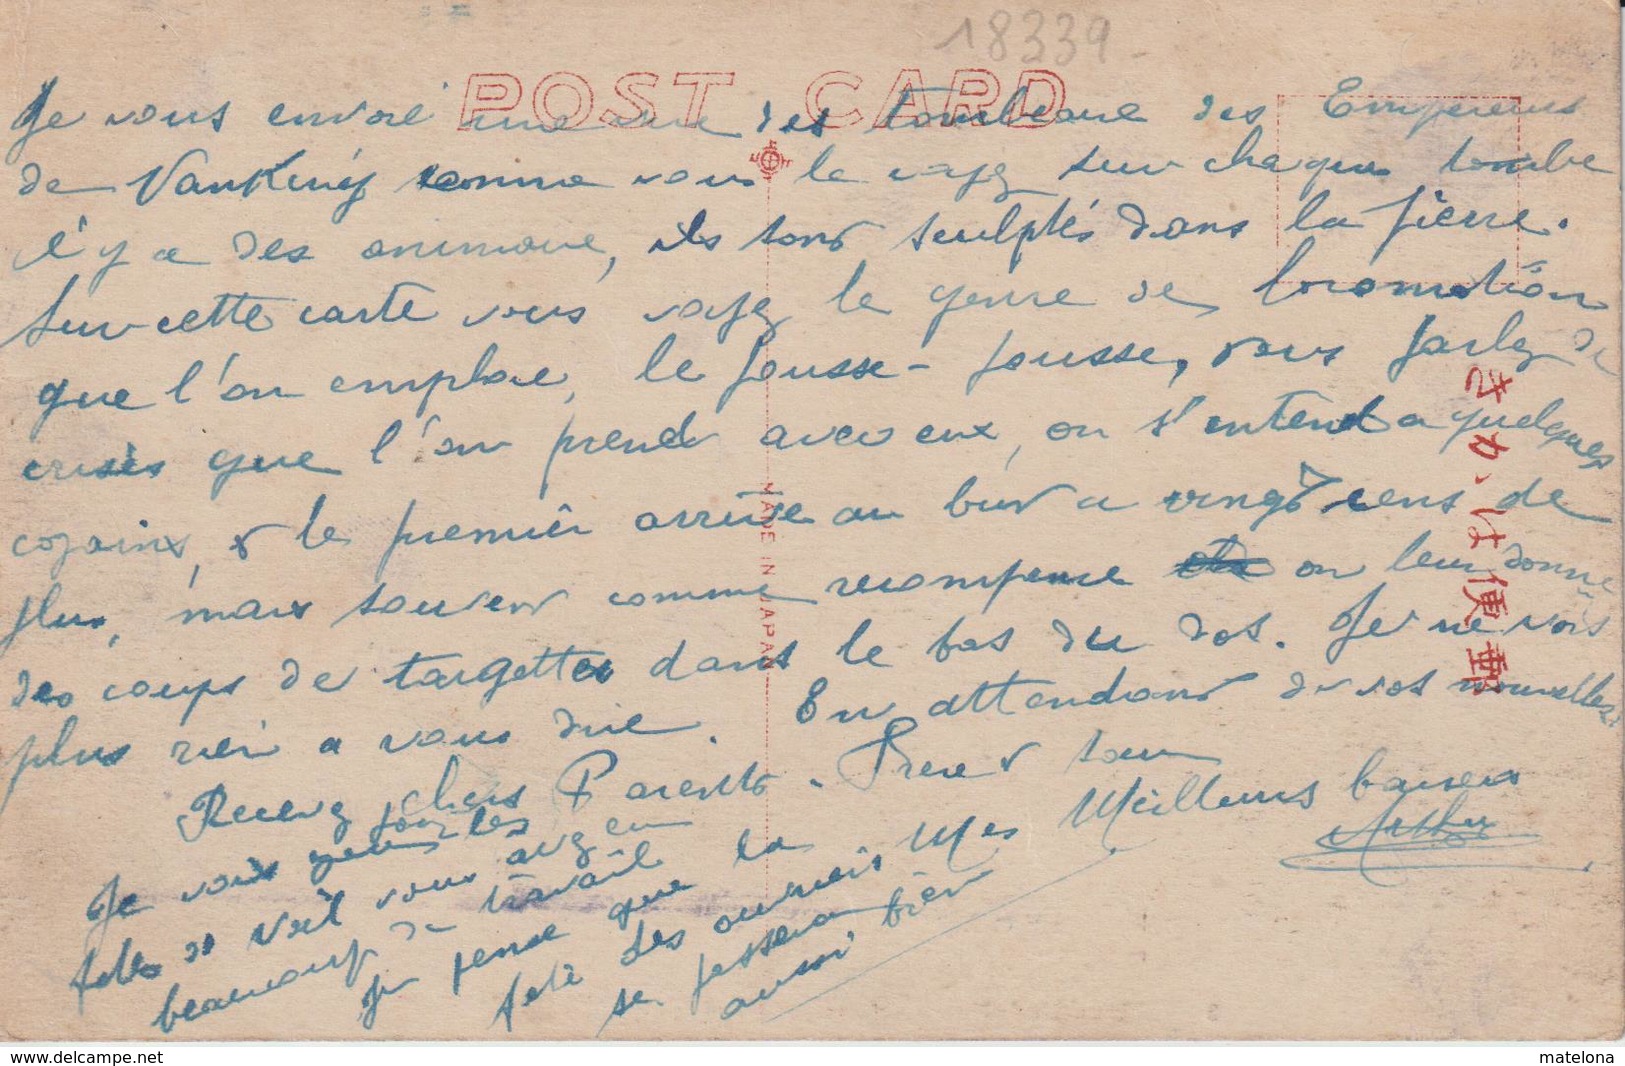 18339
POST CARD
Je vous envoie une vue des Tombeaux des Empereurs
de Nanking comme vous le voyez sur chaque tombe
il y a des animaux, ils sont sculptés dans la pierre.
Sur cette carte vous voyez le genre de locomotion
que l'on emploie, le pousse-pousse, vous parlez de
crises que l'on prend avec eux, on s'entend a quelques
copains, et le premier arrivé au but a vingt cens de
plus, mais souvent comme recompense on leur donne
des coups de targettes dans le bas du dos. Je ne vois
plus rien a vous dire. En attendant de vos nouvelles.
Recevez chers Parents. Frere et sœur
Mes Meilleurs baisers
Arthur
Je vois pour les
fetes de Noël vous avez eu
beaucoup de travail
Je pense que la
fete des ouvriers
se passera
aussi bien
MADE IN JAPAN
きかは便郵
www.delcampe.net
matelona